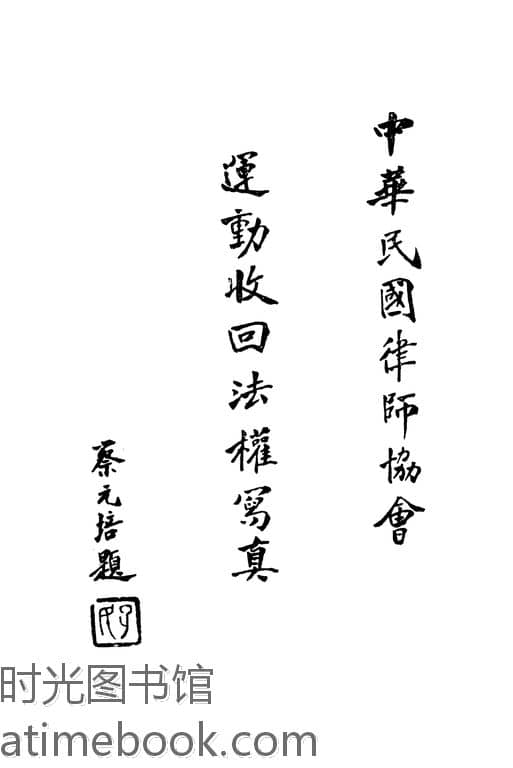 中華民國律師協會
運動收回法權寫真
蔡元培題
时光图书馆
atimebook.com